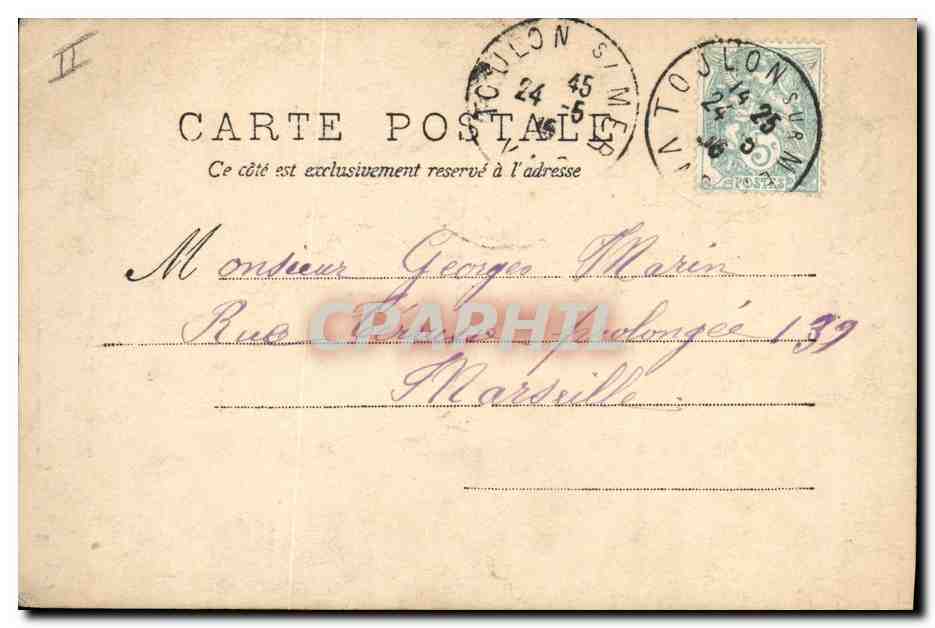 II
TOULON S/ MER
24 45
-5
TOULON SUR ME
VA
25
24
5
5
POSTES
CARTE POSTALE
Ce côté est exclusivement reservé à l'adresse
Monsieur Georges Marin
Rue prolongée 139
Marseille
CPAPHIL